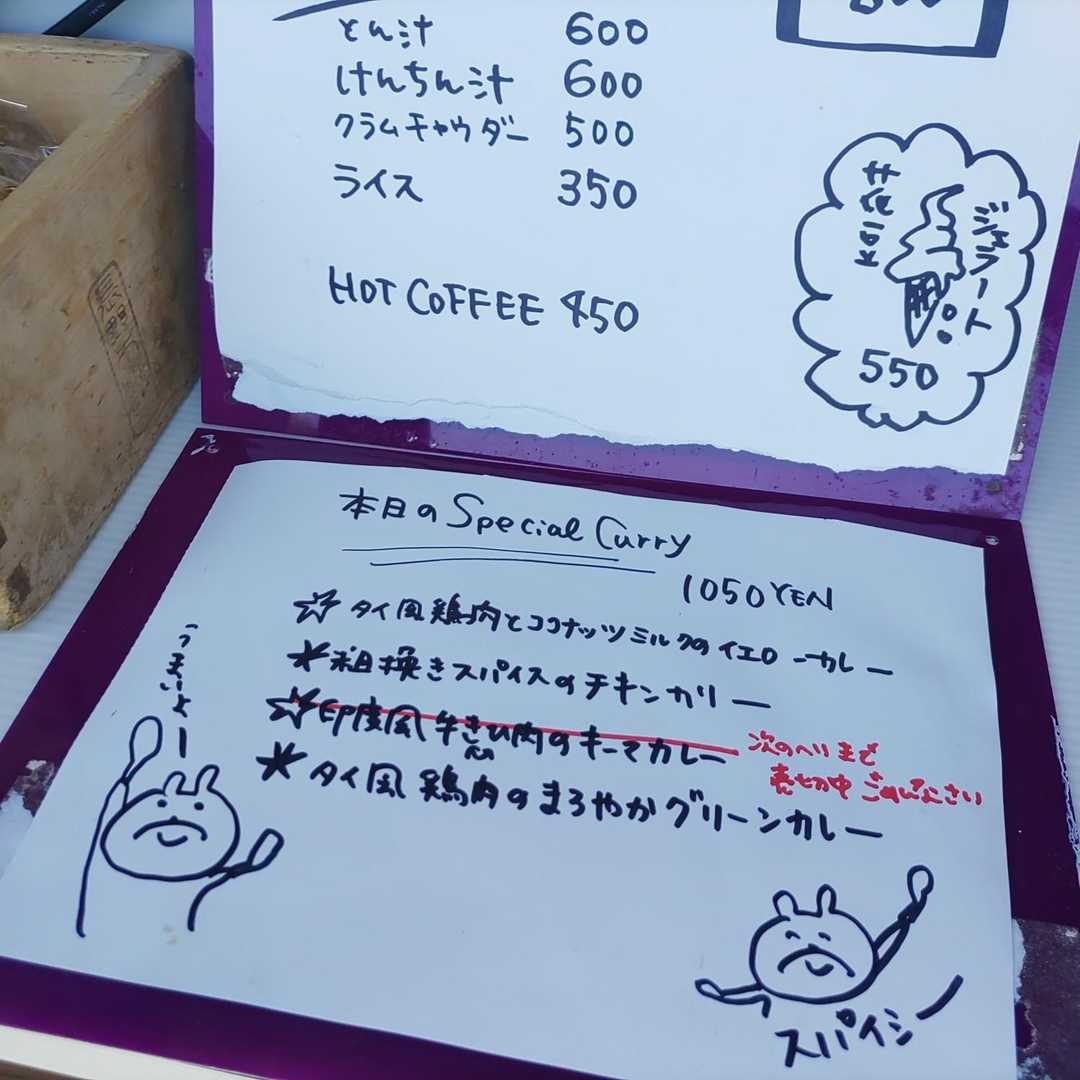 とん汁 600
けんちん汁 600
クラムチャウダー 500
ライス 350
HOT COFFEE 450
花豆
ジェラート
550
本日の Special Curry
1050 YEN
☆ タイ風鶏肉とココナッツミルクのイエローカレー
★ 粗挽きスパイスのチキンカリー
☆ 印度風牛きひ肉のキーマカレー
次のべりまで
売切中 ごめんなさい
★ タイ風鶏肉のまろやかグリーンカレー
うまいよー
スパイシー